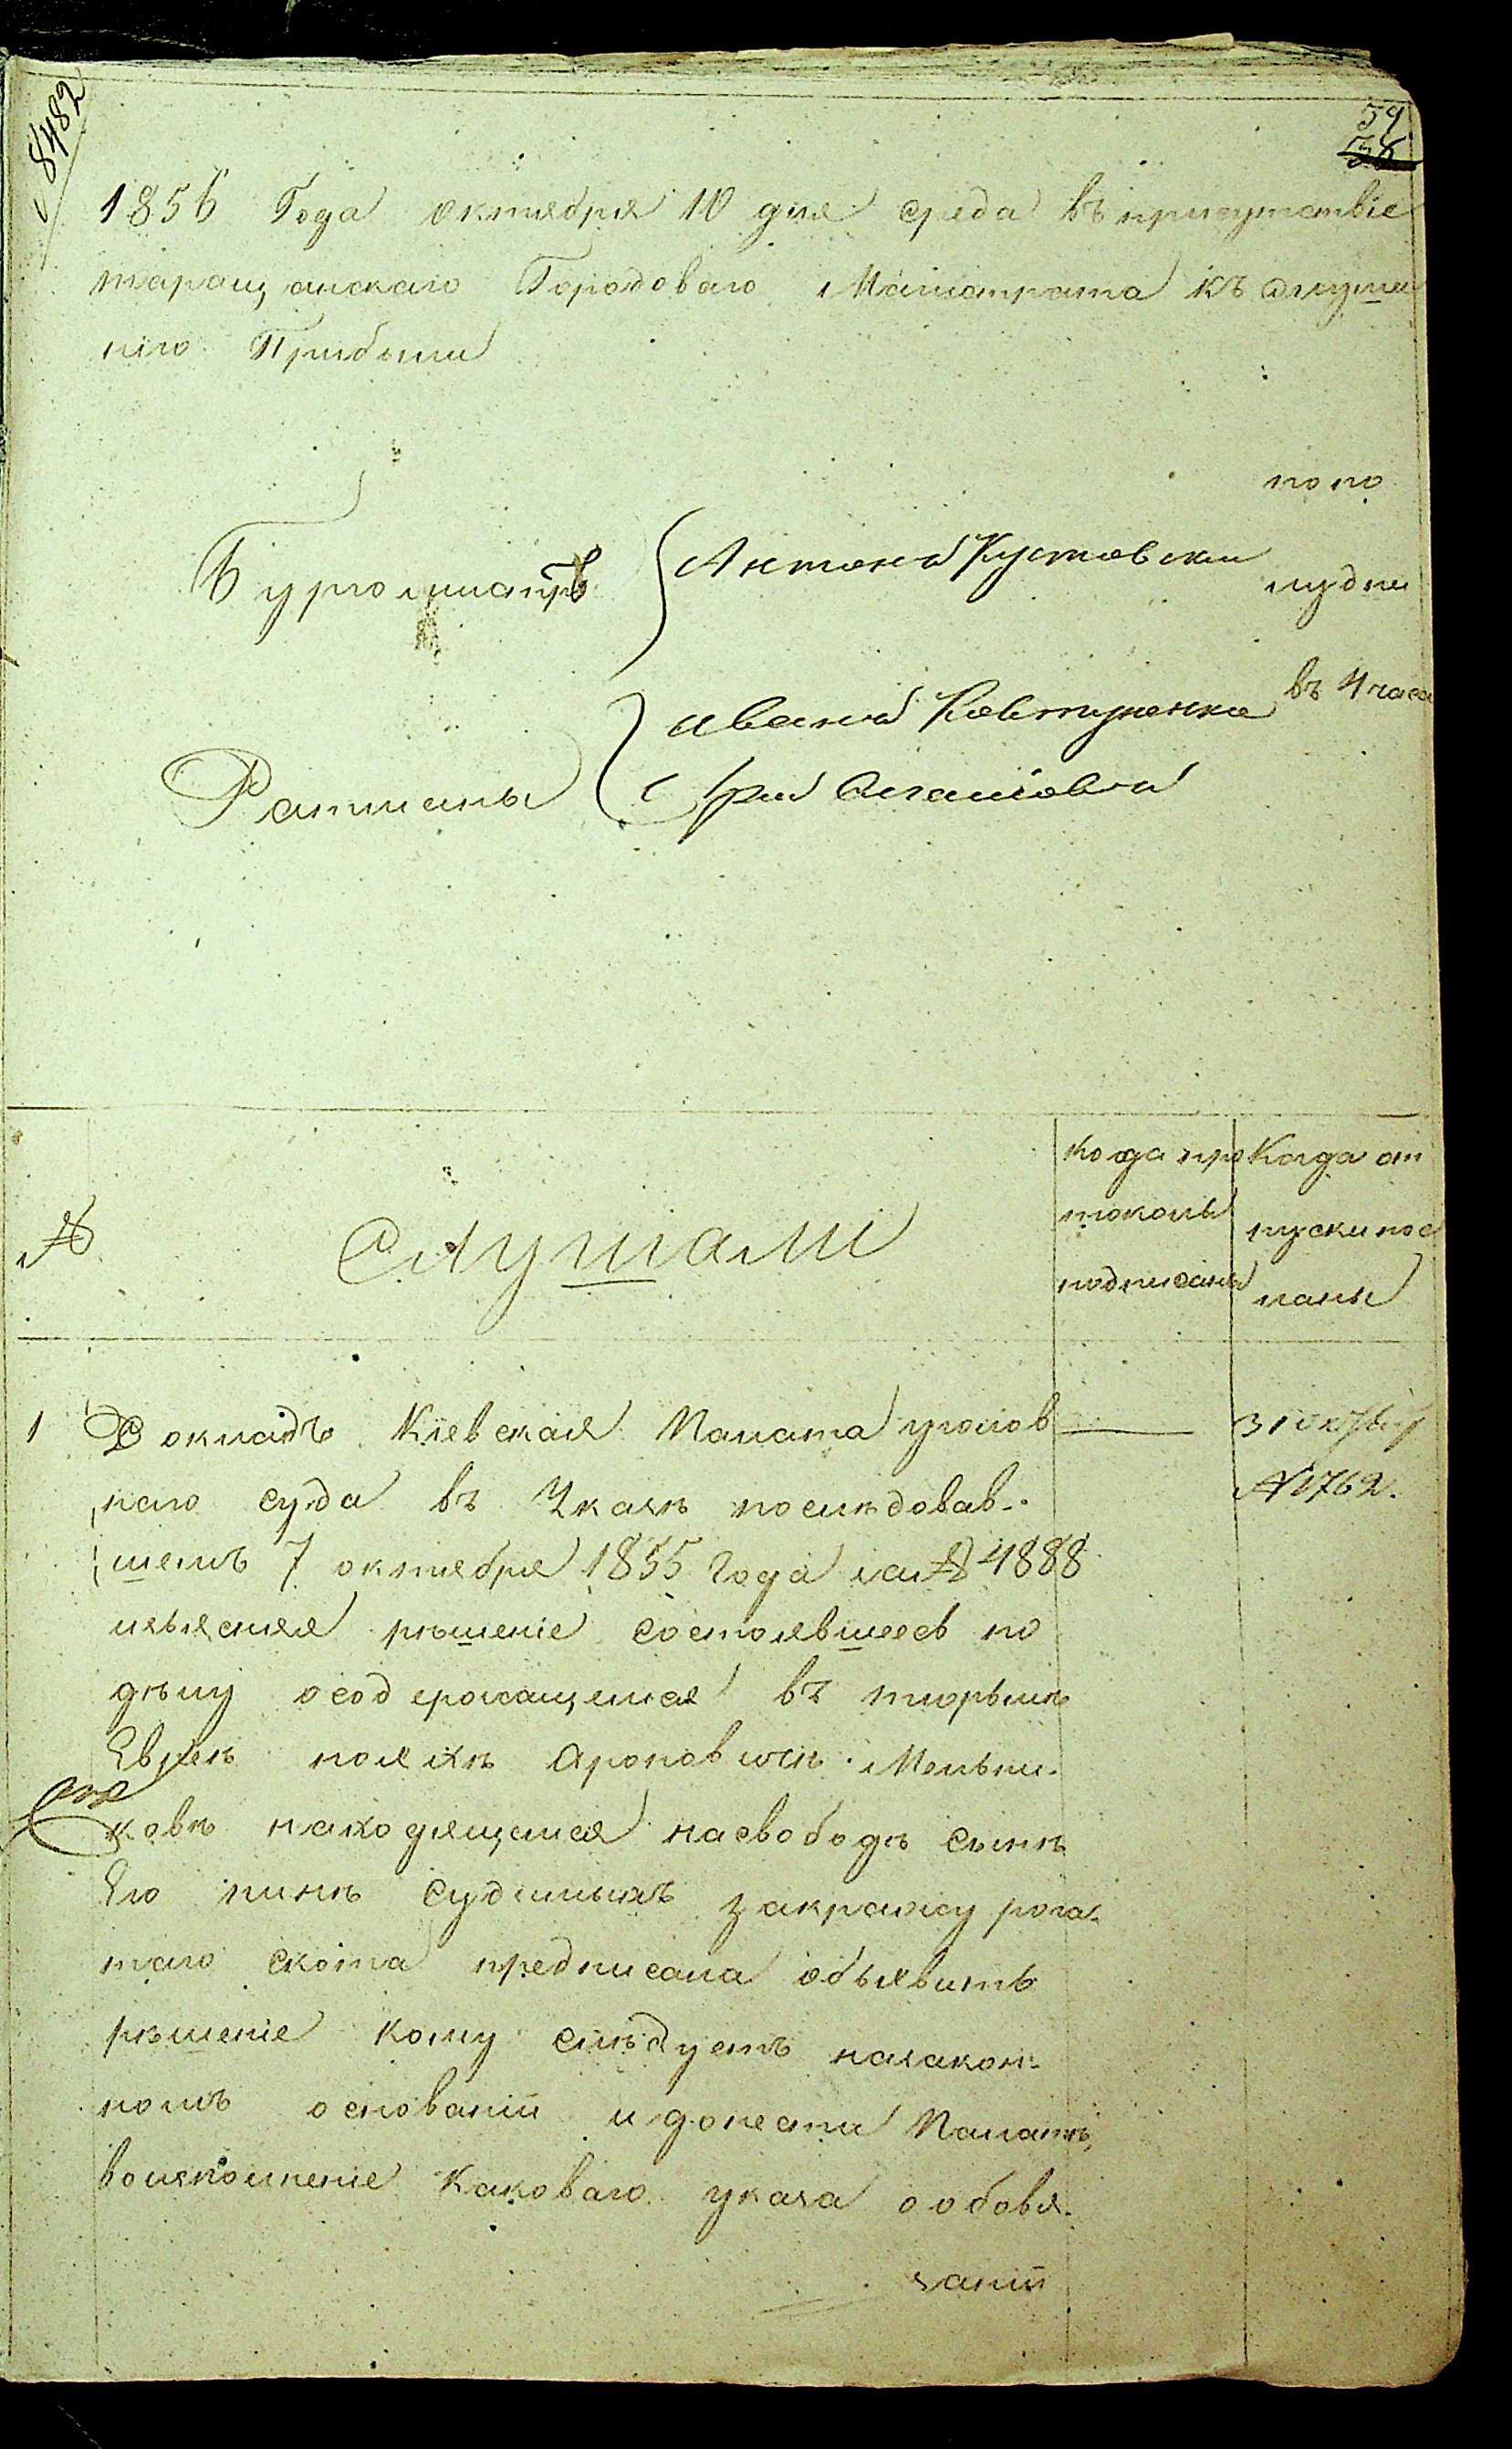 8482
59
36
1856 Года октября 10 дня среда въ присутствіе
таращанскаго Городоваго Магистрата къ слуша
нію Прибыли
по по
Бургомистръ Антонъ Кустовски
лудни
въ 4 часа
иванъ Ковтуненко
Ратманы
№ Слушали
Когда про
токолы
подписаны
Когда от
пуски пос
ланы
1 Докладъ Кіевская Палата уголов
31 октбря
№ 1762.
наго суда въ Указѣ последовав-
шемъ 7 октября 1855 Года за № 4888
изъясняя рѣшеніе состоявшееся по
дѣлу осодержащемся въ тюрьмѣ
Евреѣ Ароновичѣ Мельни-
ковѣ находящемся насвободѣ сынѣ
Его пинкѣ судимыхъ закражу рога-
таго скота предписала объявить
рѣшеніе кому слѣдуетъ назакон-
номъ основаніи идонести Палатѣ,
воисполненіе каковаго указа ообовя-
заніи